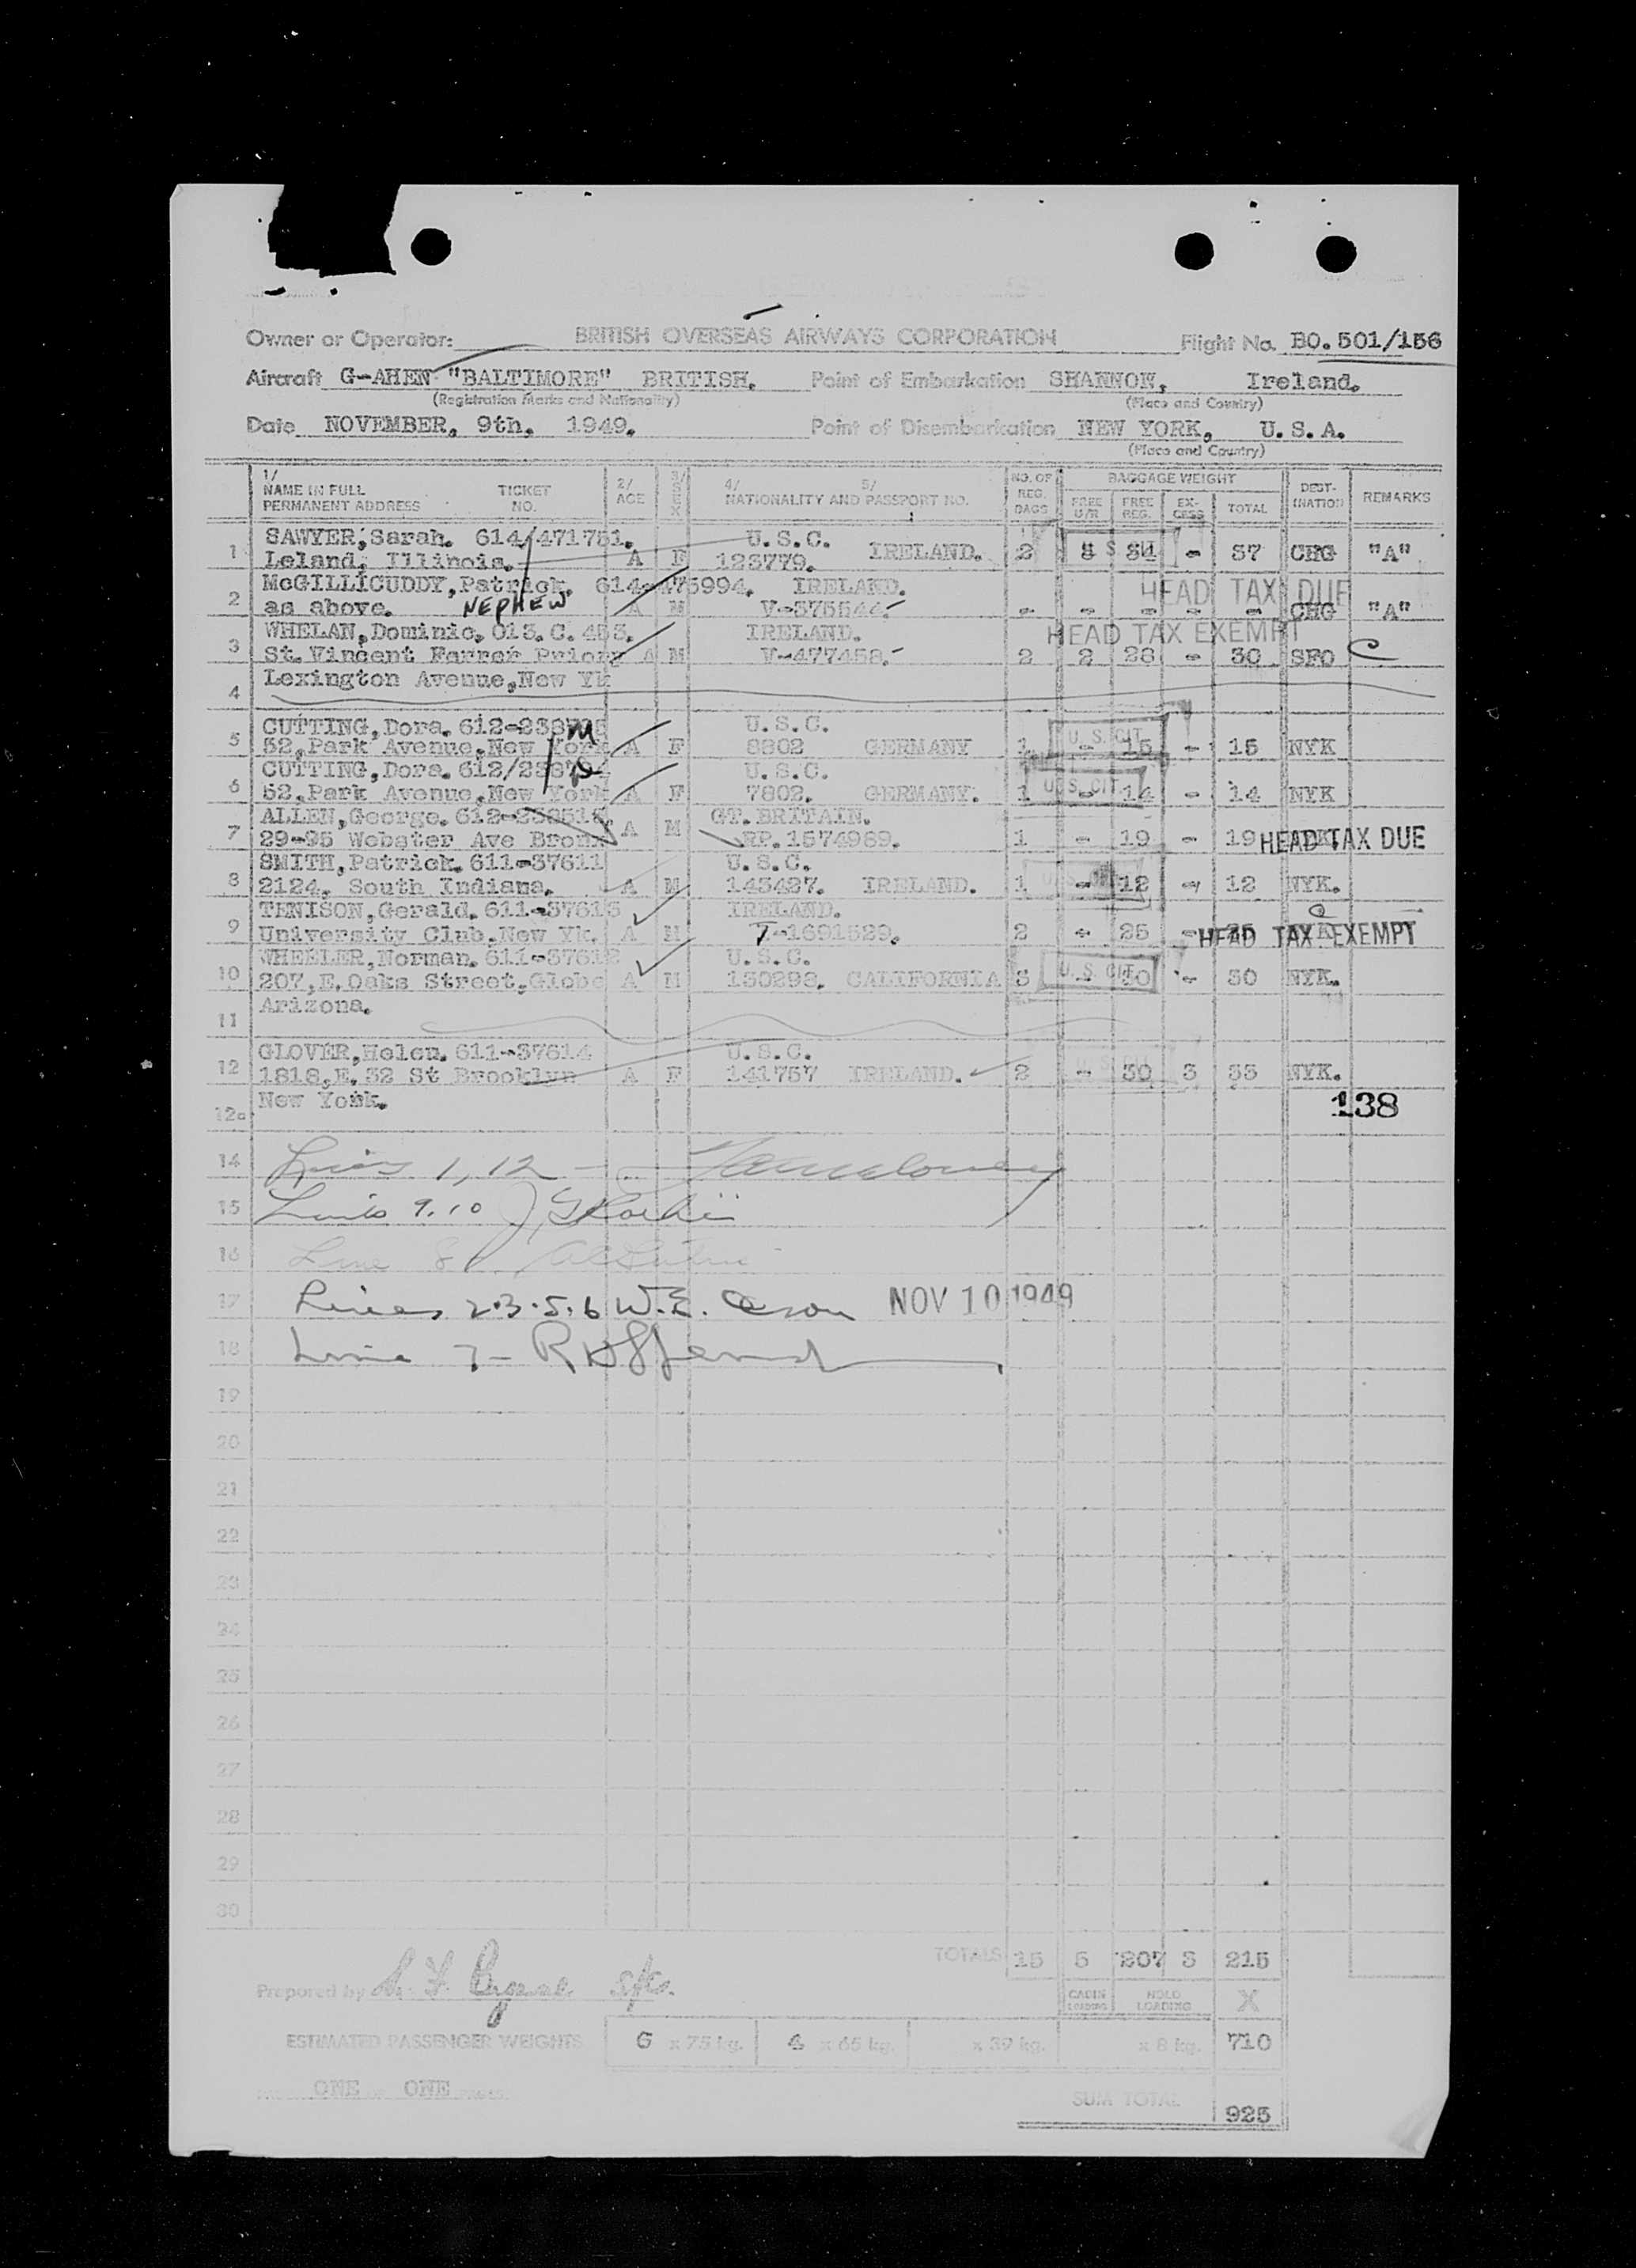 Owner or Operator: BRITISH OVERSEAS AIRWAYS CORPORATION Flight No. BO.501/156
Aircraft G-AHEN "BALTIMORE" BRITISH. Point of Embarkation SHANNON, Ireland.
(Registration Marks and Nationality) (Place and Country)
Date NOVEMBER, 9th, 1949. Point of Disembarkation NEW YORK, U.S.A.
(Place and Country)
1/ NAME IN FULL PERMANENT ADDRESS TICKET NO. 2/ AGE 3/ SEX 4/ 5/ NATIONALITY AND PASSPORT NO. NO. OF REG. BAGS BAGGAGE WEIGHT FREE U/R FREE REG. EX-CESS TOTAL DEST-INATION REMARKS
1 SAWYER,Sarah. 614/471751. U.S.C. IRELAND. 2 - 37 CHG "A"
Leland, Illinois. A F 123779.
2 McGILLICUDDY,Patrick. 614-475994. IRELAND. HEAD TAX DUE
as above. NEPHEW A M V-375544. - - - - - CHG "A"
3 WHELAN,Dominic. 013.C.453. IRELAND. HEAD TAX EXEMPT
St.Vincent Farrer Priory A M V-477458. 2 2 28 - 30 SFO C
4 Lexington Avenue,New Yk
5 CUTTING,Dora. U.S.C. U. S. CIT.
52,Park Avenue,New York A F 8802 GERMANY 1 - 15 - 15 NYK
6 CUTTING,Dora. U.S.C. U. S. CIT.
52,Park Avenue,New York A F 7802. GERMANY. 1 - 14 - 14 NYK
7 ALLEN,George. GT.BRITAIN.
29-95 Webster Ave Bronx A M RP.1574989. 1 - 19 - 19 HEAD TAX DUE
8 SMITH,Patrick. 611-37611 U.S.C.
2124, South Indiana. A M 145427. IRELAND. 1 - 12 - 12 NYK.
9 TENISON,Gerald. 611-37613 IRELAND.
University Club,New Yk. A M T-1691529. 2 - 25 - 25 HEAD TAX EXEMPT
10 WHEELER,Norman. 611-37612 U.S.C. U. S. CIT.
207,E.Oaks Street,Globe A M 150298. CALIFORNIA 3 - 30 - 30 NYK.
11 Arizona.
12 GLOVER,Helen. 611-37614 U.S.C. U. S. CIT
1818,E.32 St Brooklyn A F 141757 IRELAND. 2 - 30 3 33 NYK.
12a New York. 138
14 Lines 1, 12 -
15 Lines 9.10
16 Line 8
17 Lines 2.3.5.6 W.E. NOV 10 1949
18 Line 7 -
19
20
21
22
23
24
25
26
27
28
29
30
TOTALS 15 5 207 3 215
Prepared by
CABIN LOADING HOLD LOADING X
ESTIMATED PASSENGER WEIGHTS 6 x 75 kg. 4 x 65 kg. x 39 kg. x 8 kg. 710
ONE ONE
SUM TOTAL 925